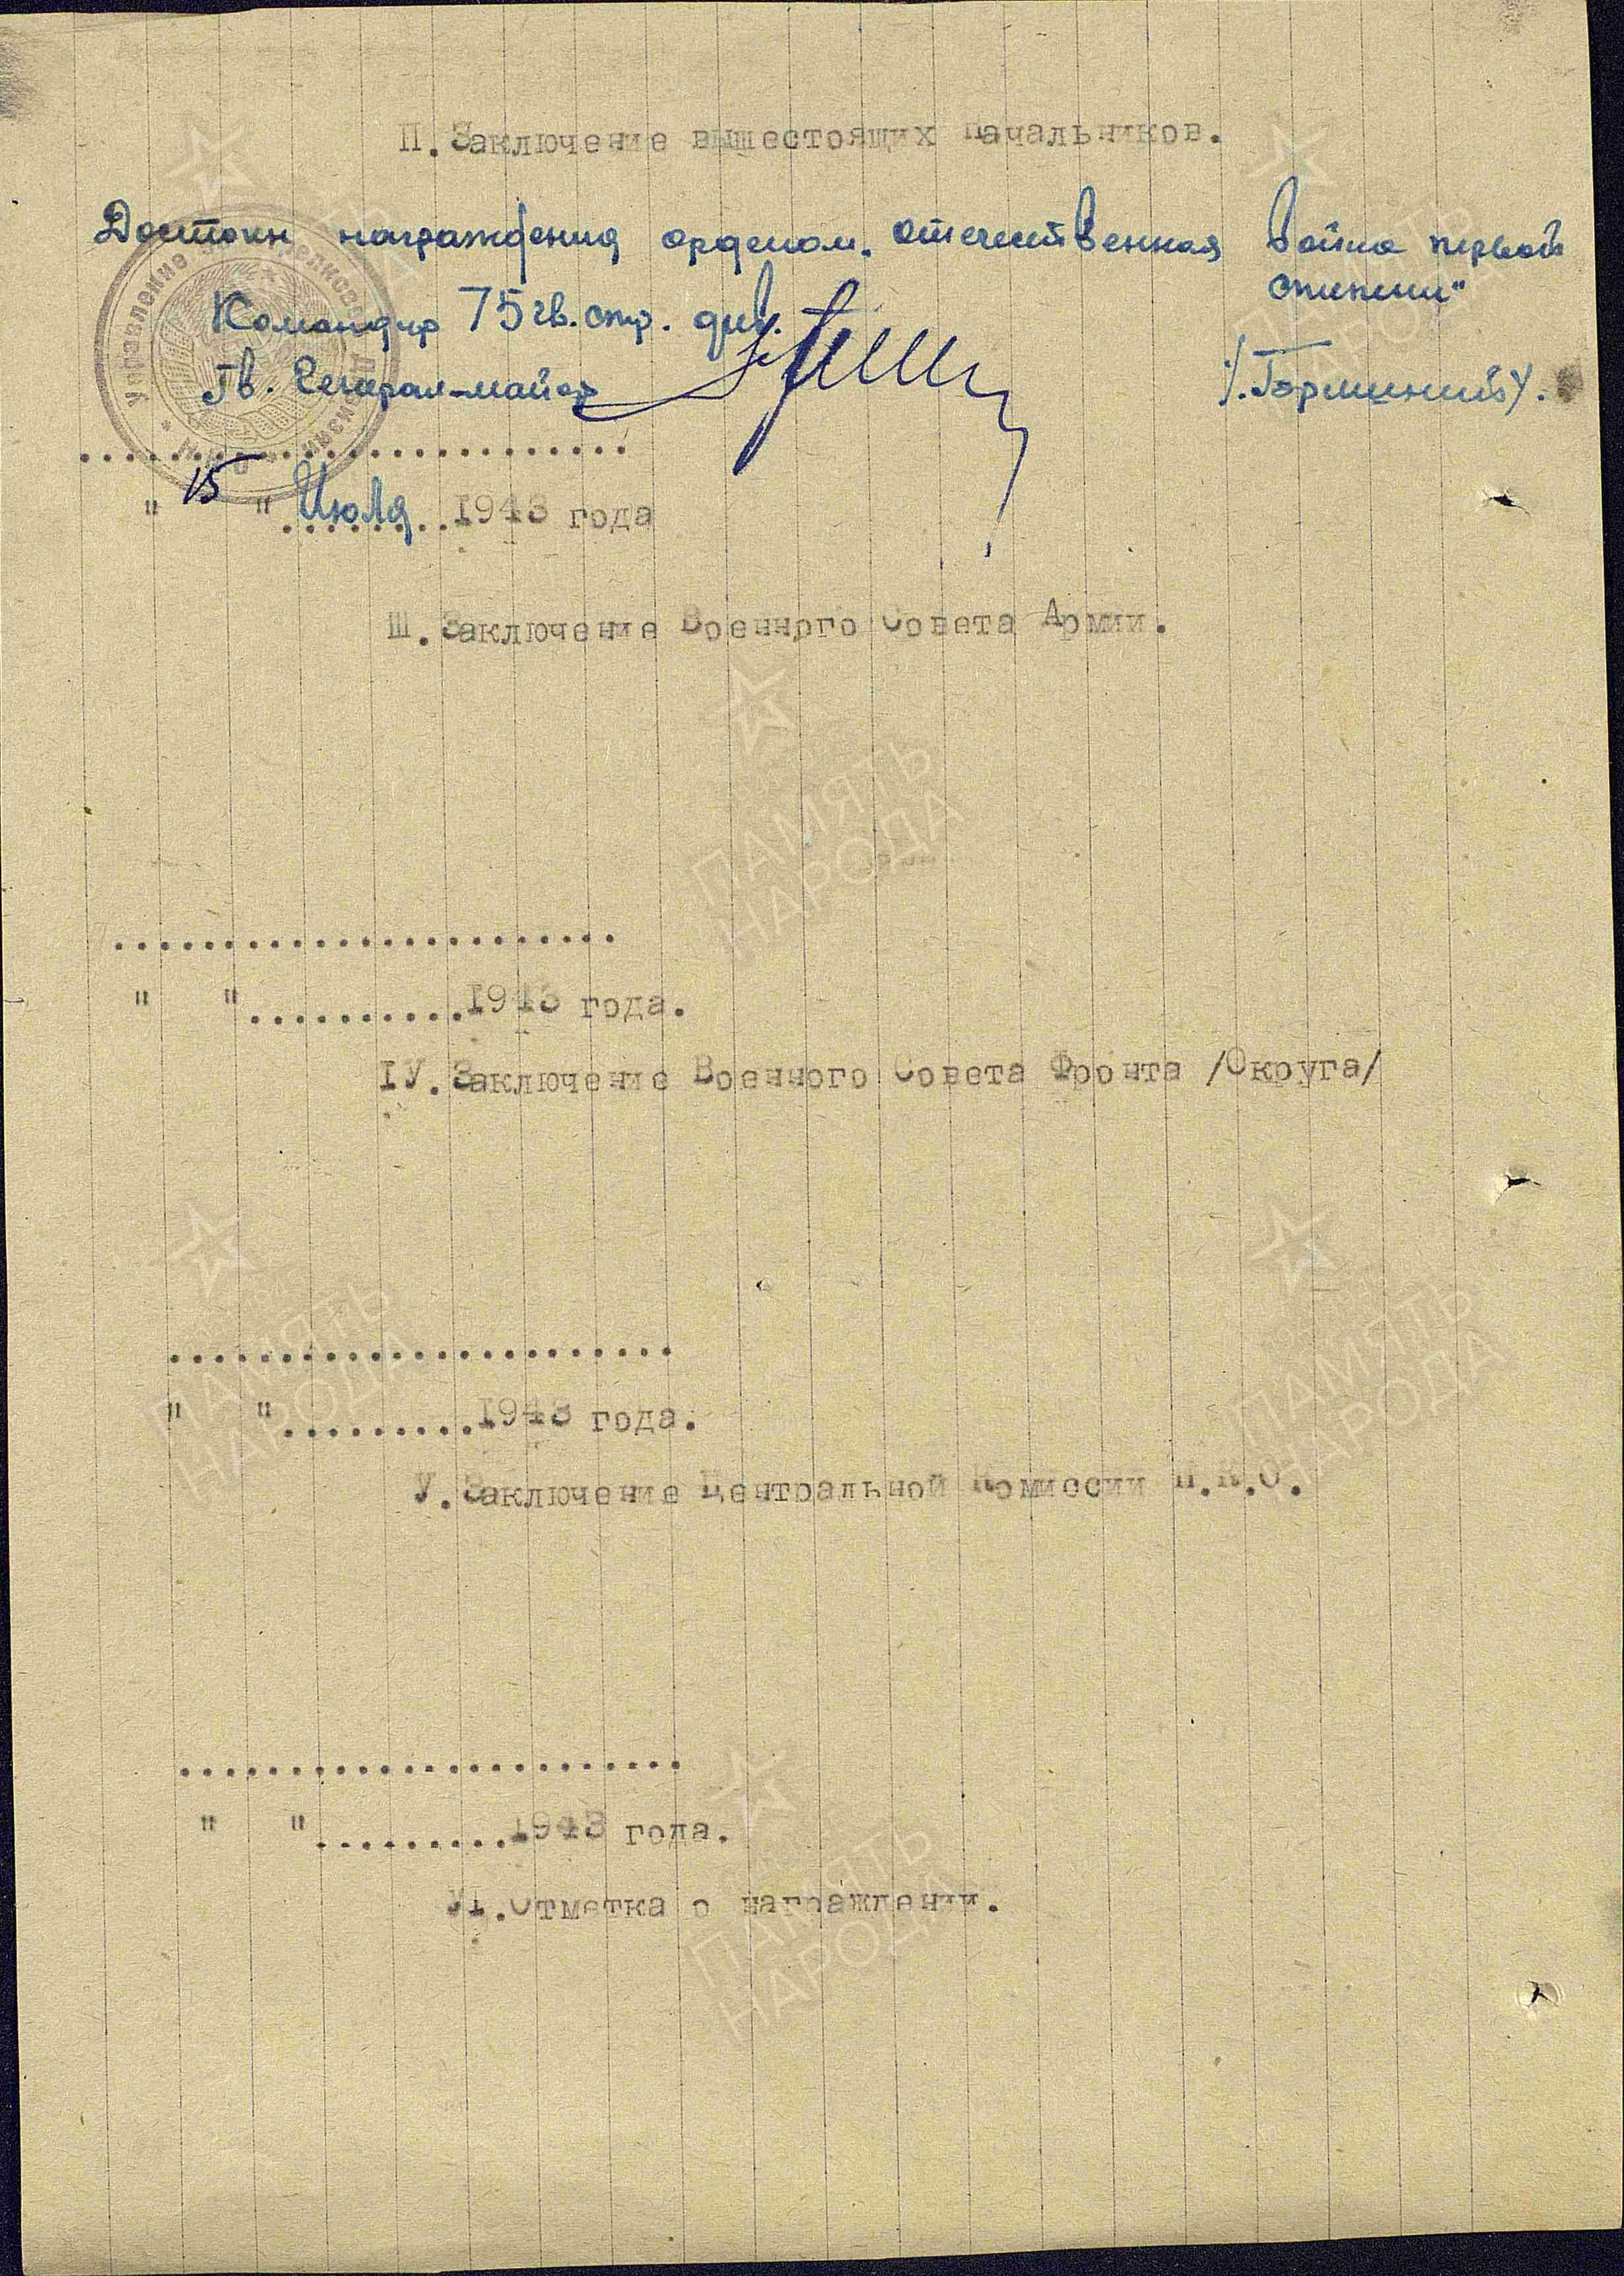 П. Заключение вышестоящих начальников.
Достоин награждения орденом „Отечественная война первой
степени"
Командир 75 гв. стр. див.
Гв. Генерал-майор /Горишний/.
.........................
" 15 " Июля 1943 года
Ш. Заключение Военного Совета Армии.
.......................
" "..........1943 года.
IУ. Заключение Военного Совета Фронта /Округа/
.......................
" ".........1943 года.
У. Заключение Центральной Комиссии Н.К.О.
.......................
" ".........1943 года.
УI. Отметка о награждении.
ПАМЯТЬ
НАРОДА